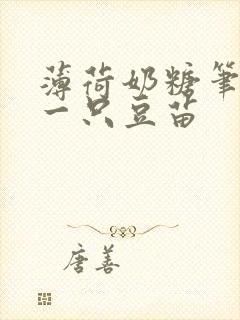 薄荷奶糖笔
一只豆苗
唐善